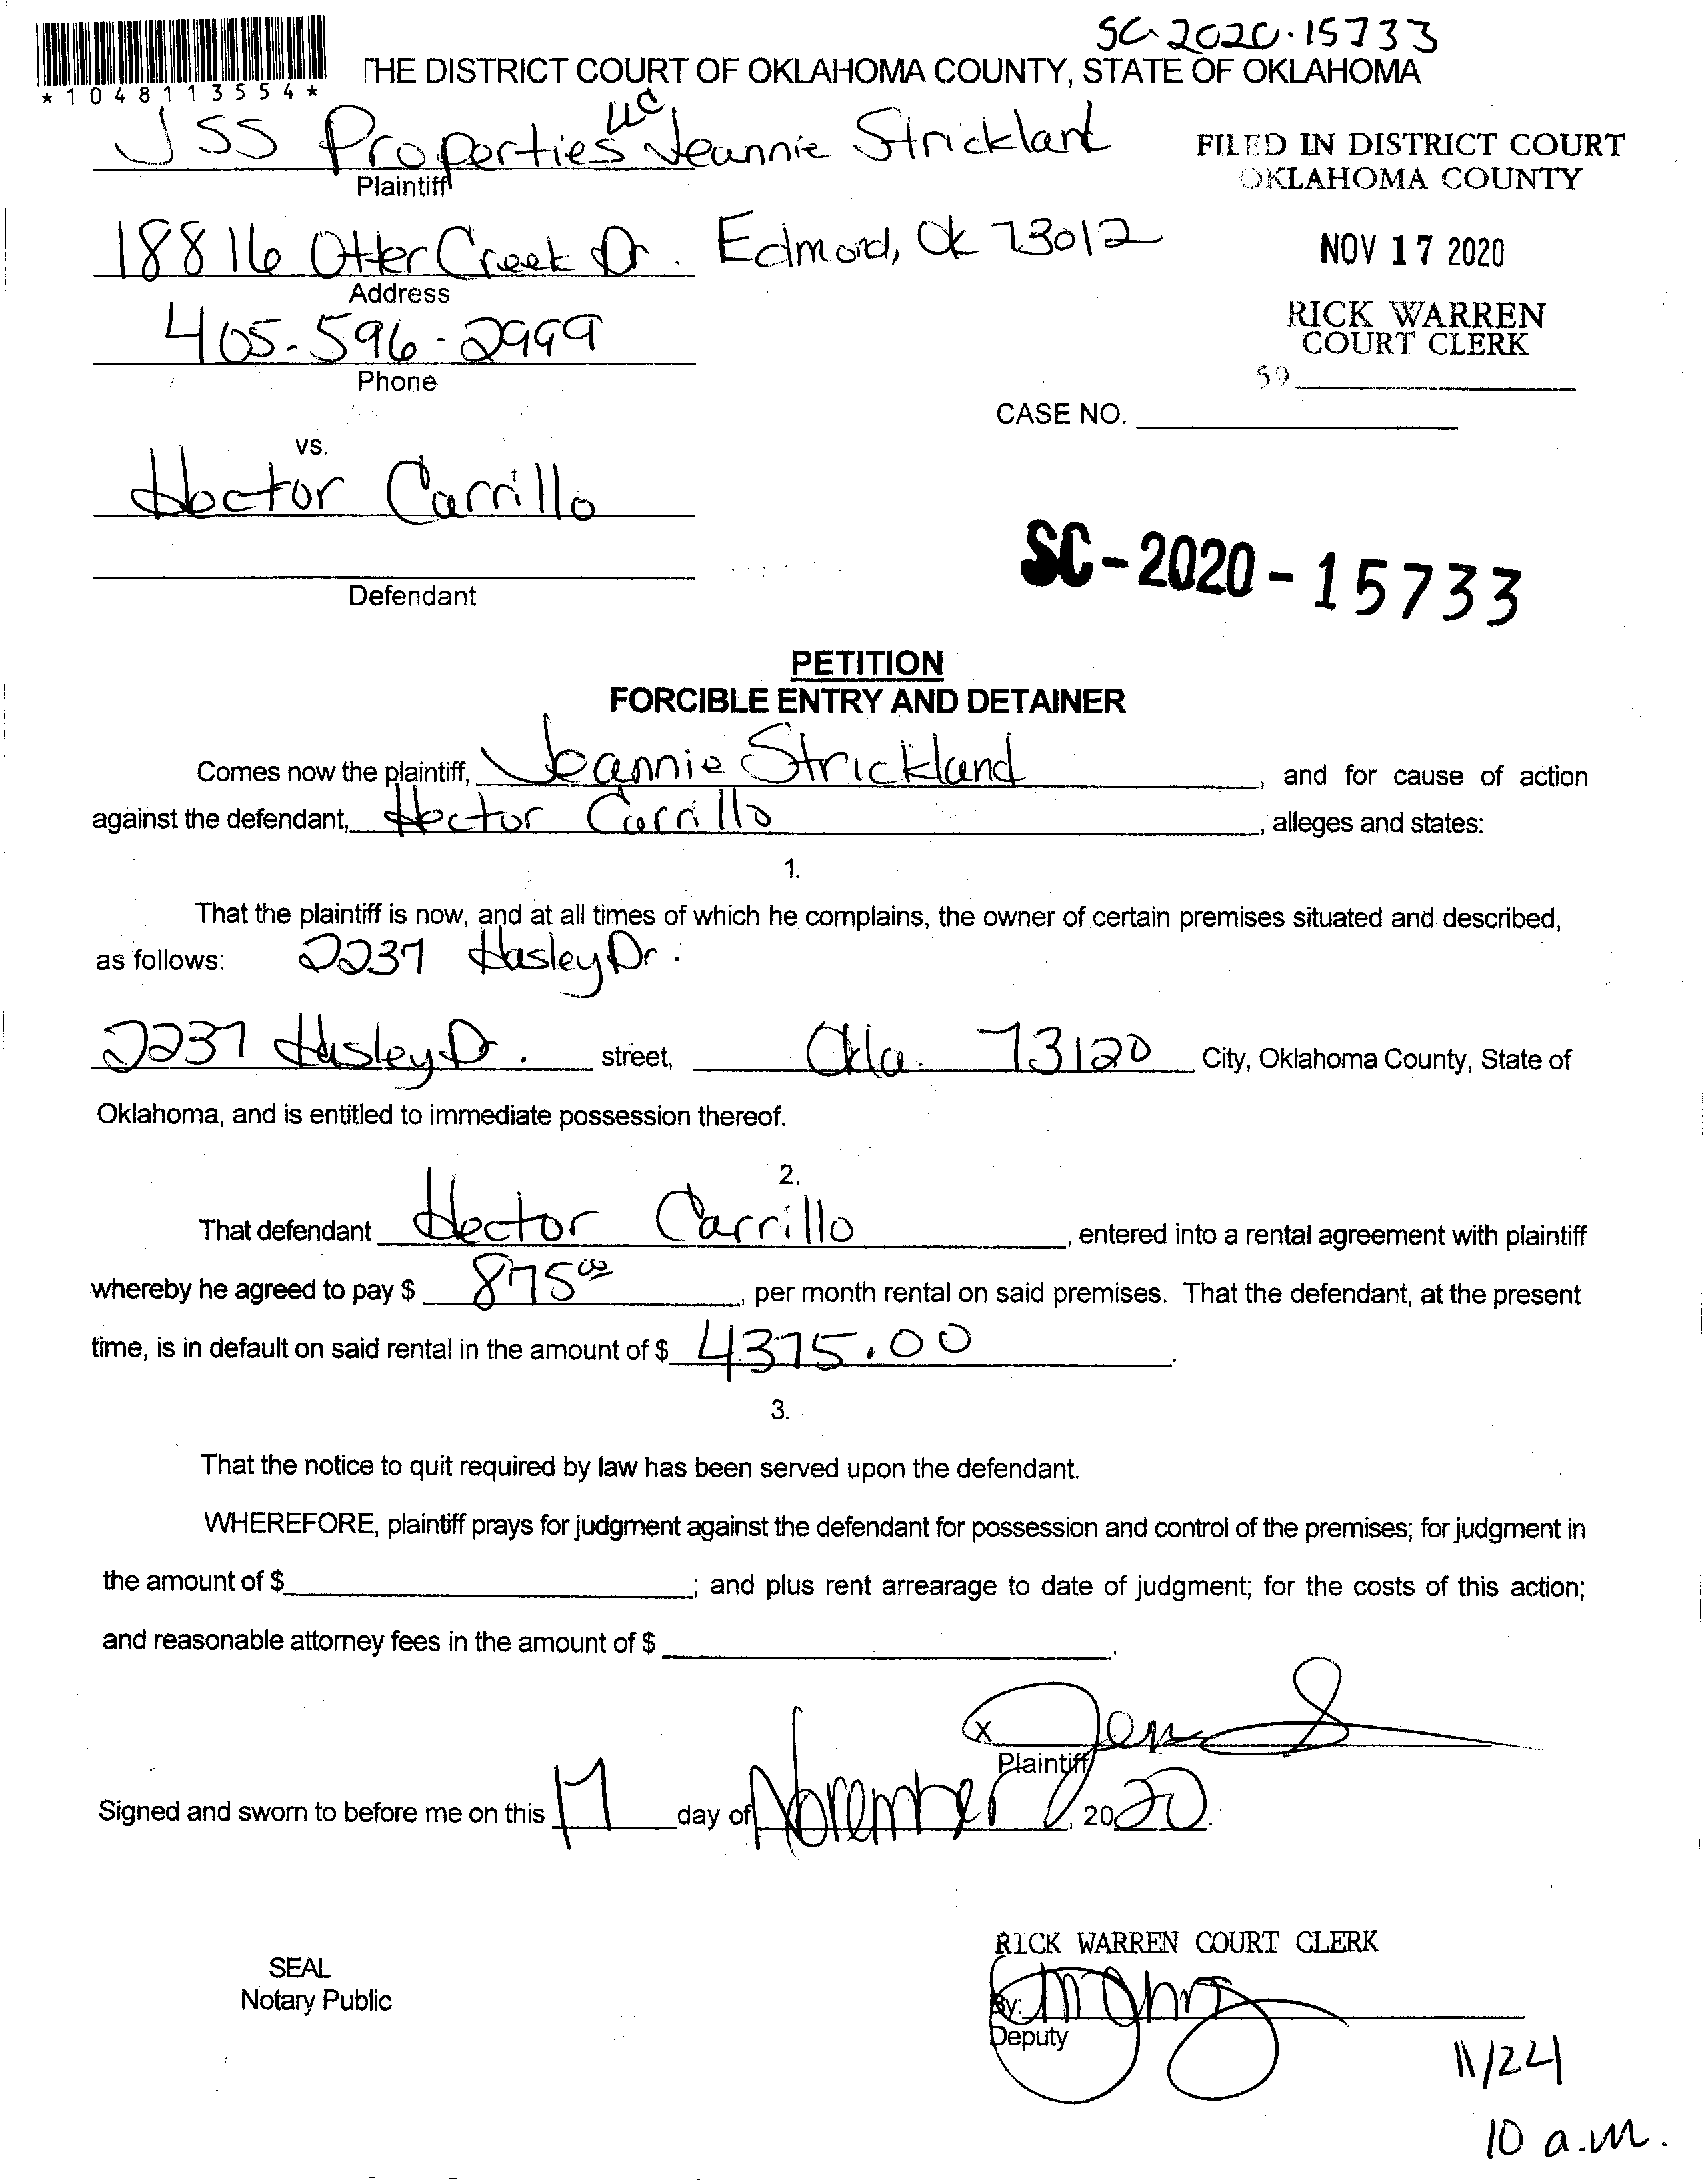 SC-2020-15733
THE DISTRICT COURT OF OKLAHOMA COUNTY, STATE OF OKLAHOMA
*1048113554*
JSS Properties LLC Jeannie Strickland
Plaintiff
FILED IN DISTRICT COURT
OKLAHOMA COUNTY
18816 Otter Creek Dr. Edmond, Ok 73012
Address
NOV 17 2020
405-596-2999
Phone
RICK WARREN
COURT CLERK
59
CASE NO.
vs.
Hector Carrillo
Defendant
SC-2020-15733
PETITION
FORCIBLE ENTRY AND DETAINER
Comes now the plaintiff, Jeannie Strickland, and for cause of action
against the defendant, Hector Carrillo, alleges and states:
1.
That the plaintiff is now, and at all times of which he complains, the owner of certain premises situated and described,
as follows: 2237 Hasley Dr.
2237 Hasley Dr. street, Okla. 73120 City, Oklahoma County, State of
Oklahoma, and is entitled to immediate possession thereof.
2.
That defendant Hector Carrillo, entered into a rental agreement with plaintiff
whereby he agreed to pay $ 875.00, per month rental on said premises. That the defendant, at the present
time, is in default on said rental in the amount of $ 4375.00.
3.
That the notice to quit required by law has been served upon the defendant.
WHEREFORE, plaintiff prays for judgment against the defendant for possession and control of the premises; for judgment in
the amount of $ ; and plus rent arrearage to date of judgment; for the costs of this action;
and reasonable attorney fees in the amount of $ .
X
Plaintiff
Signed and sworn to before me on this 17 day of November, 2020.
RICK WARREN COURT CLERK
SEAL
Notary Public
By:
Deputy
11/24
10 a.m.